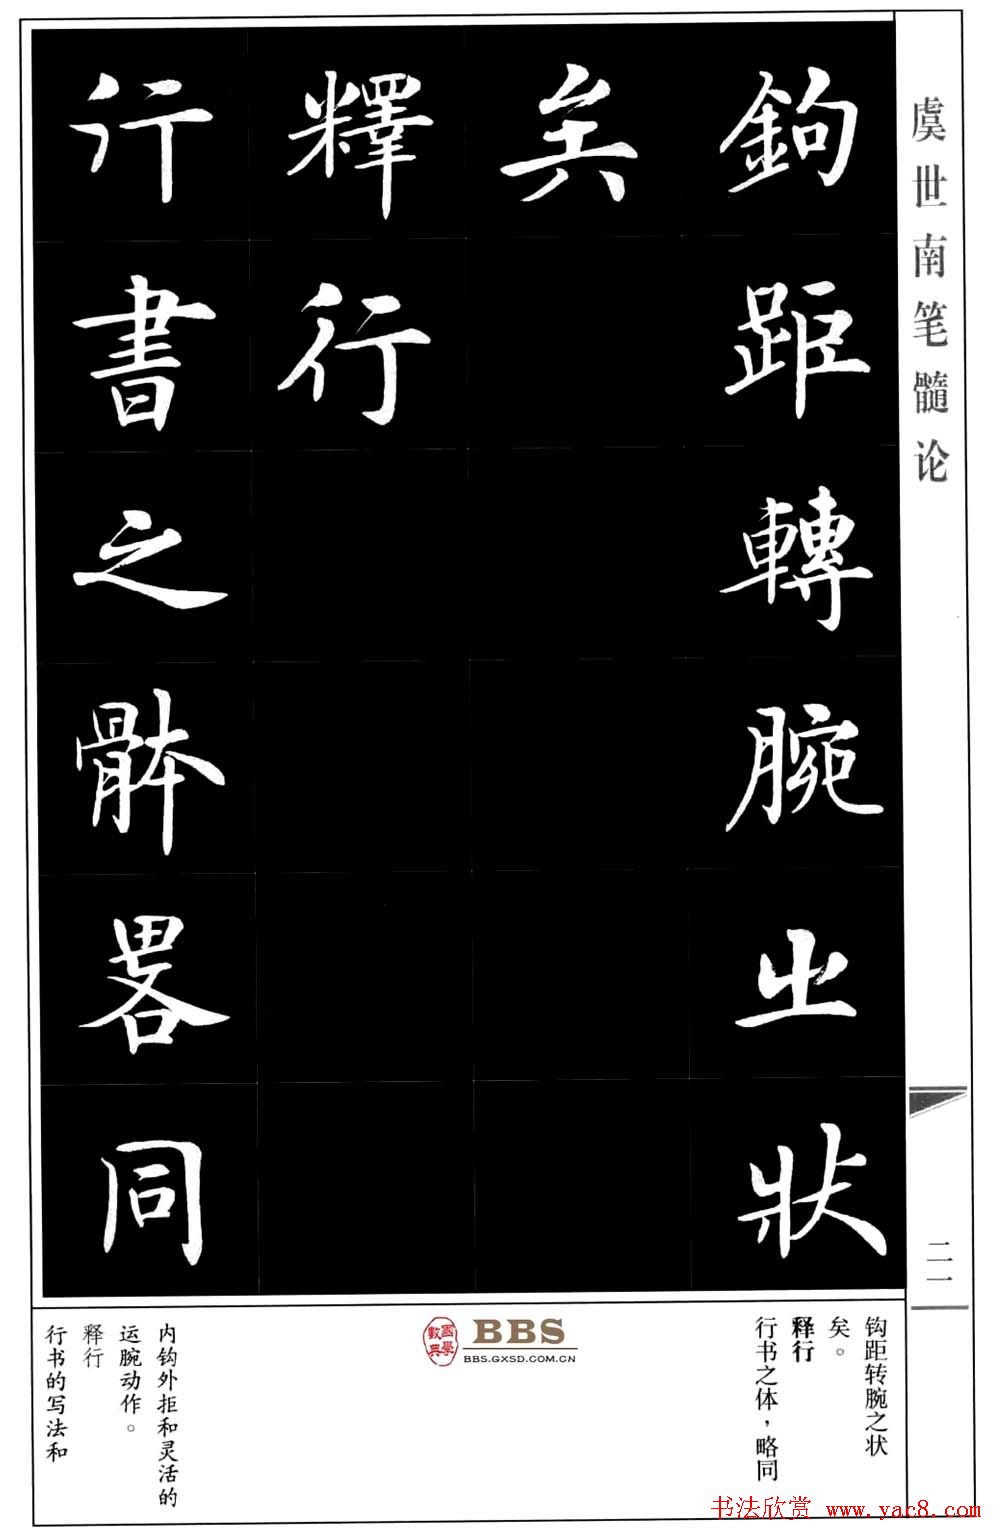 虞世南笔髓论
鉤距轉腕之狀
矣
釋行
行書之骵畧同
二一
钩距转腕之状
矣。
释行
行书之体，略同
國學數典
BBS
BBS.GXSD.COM.CN
内钩外拒和灵活的
运腕动作。
释行
行书的写法和
书法欣赏 www.yac8.com